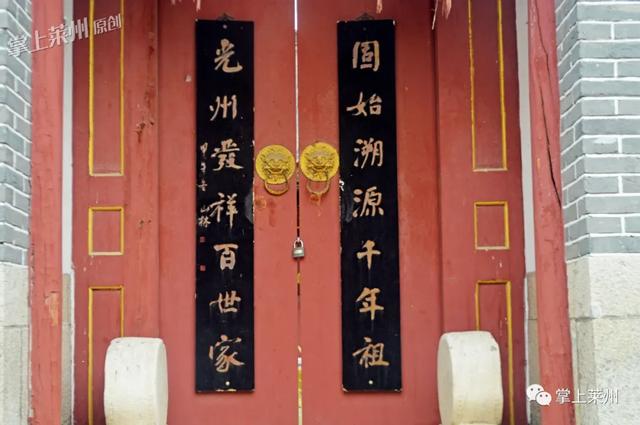 掌上莱州 原创
固始溯源千年祖
光州發祥百世家
甲午
山林
掌上莱州